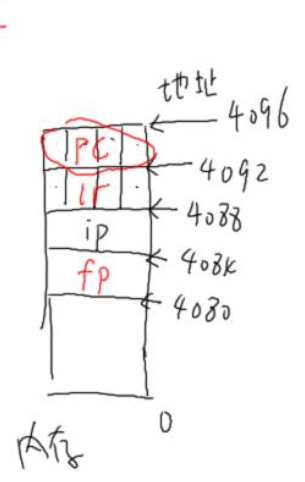 地址
4096
PC
4092
lr
4088
ip
4084
fp
4080
0
内存